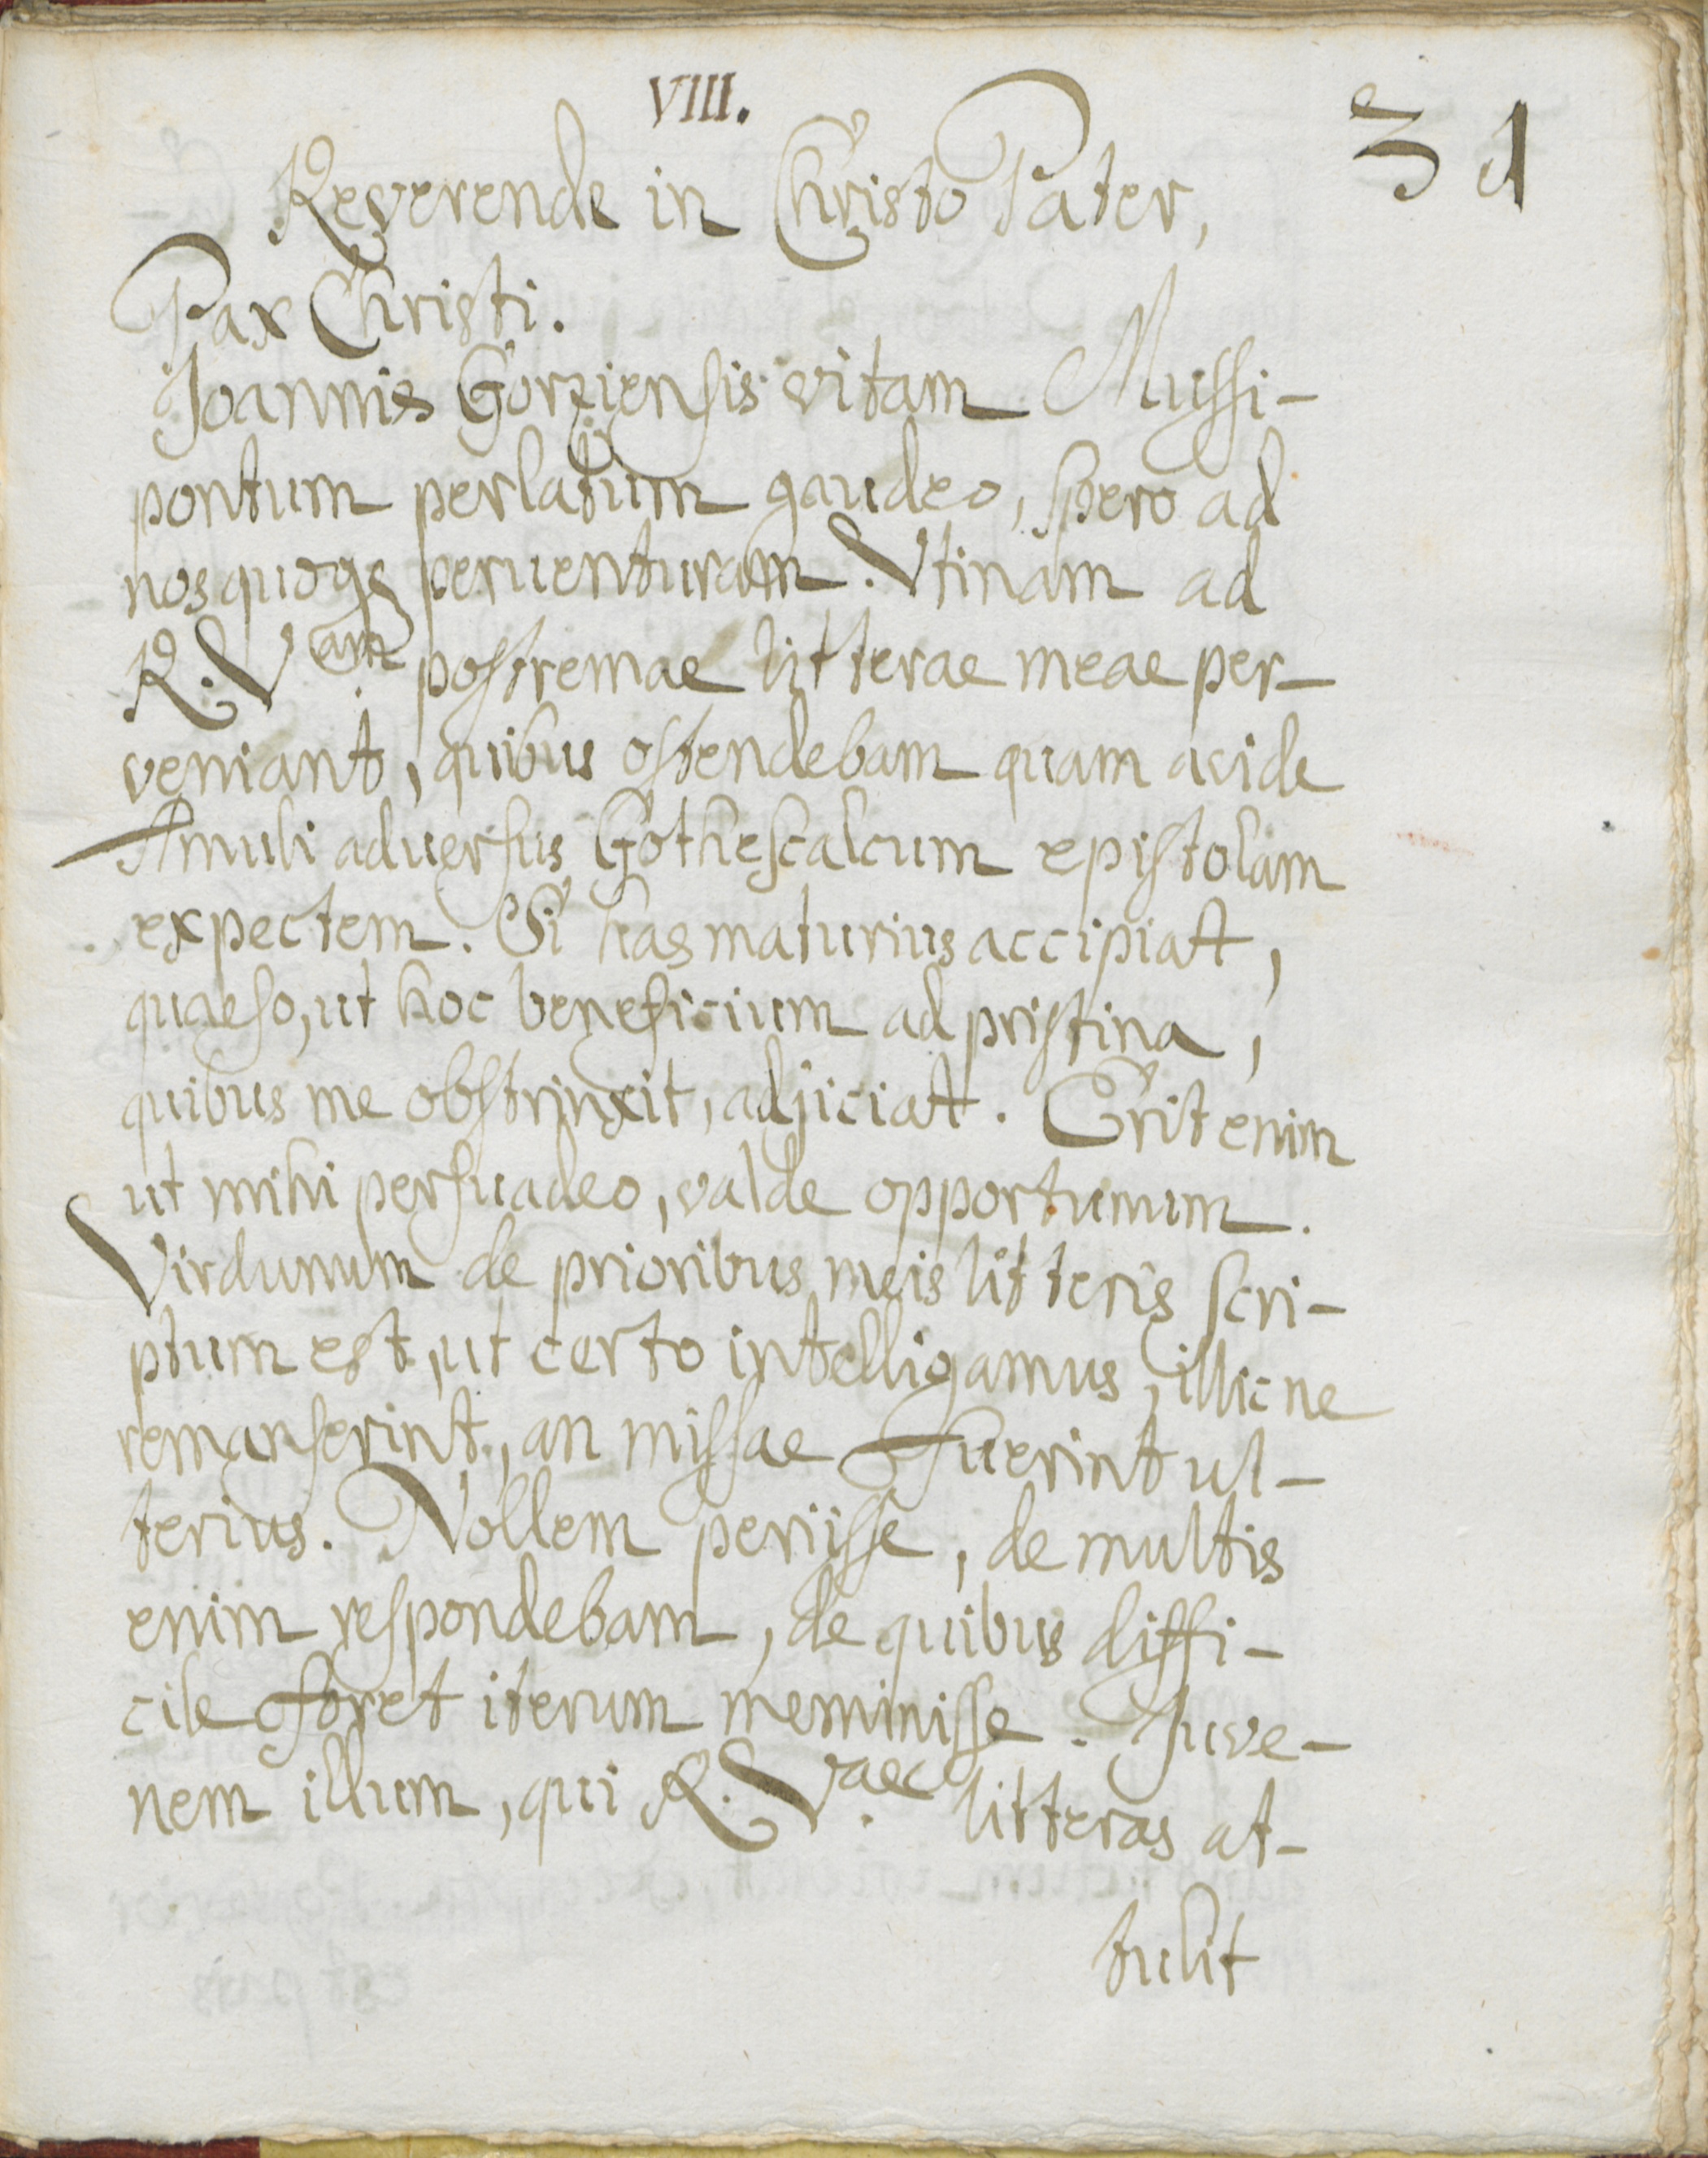 VIII.
31
Reverende in Christo Pater,
Pax Christi.
Joannis Gorziensis vitam Mussi-
pontum perlatum gaudeo, spero ad
nos quoqꝫ peruenturam. Vtinam ad
R. V.am postremae litterae meae per-
veniant, quibus ostendebam quam avide
Amuli aduersus Gothescalcum epistolam
expectem. Si has maturius accipiat,
quaeso, ut hoc beneficium ad pristina,
quibus me obstrinxit, adjiciat. Erit enim
ut mihi persuadeo, valde opportunum.
Virdunum de prioribus meis litteris scri-
ptum est, ut certo intelligamus, illic ne
remanserint, an missae fuerint ul-
terius. Nollem periisse, de multis
enim respondebam, de quibus diffi-
cile foret iterum meminisse. Juve-
nem illum, qui R. V.ae litteras at-
tulit